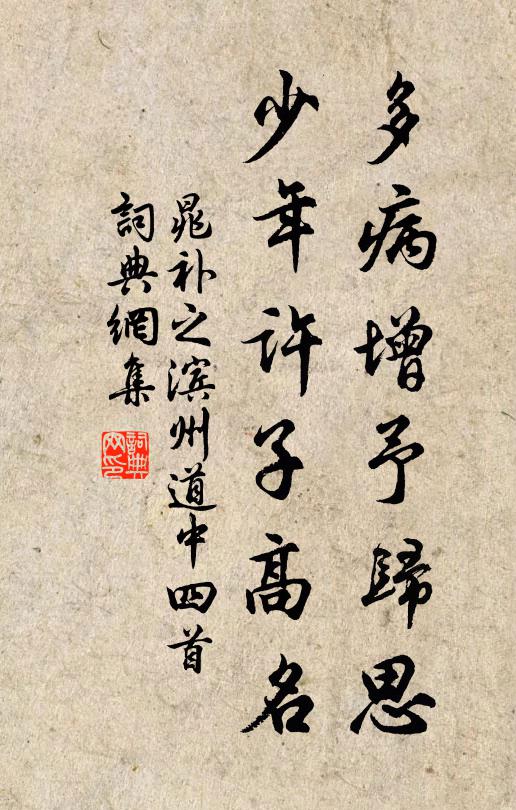 多病增予歸思
少年許子高名
晁补之滨州道中四首
詞典網集
詞典網印